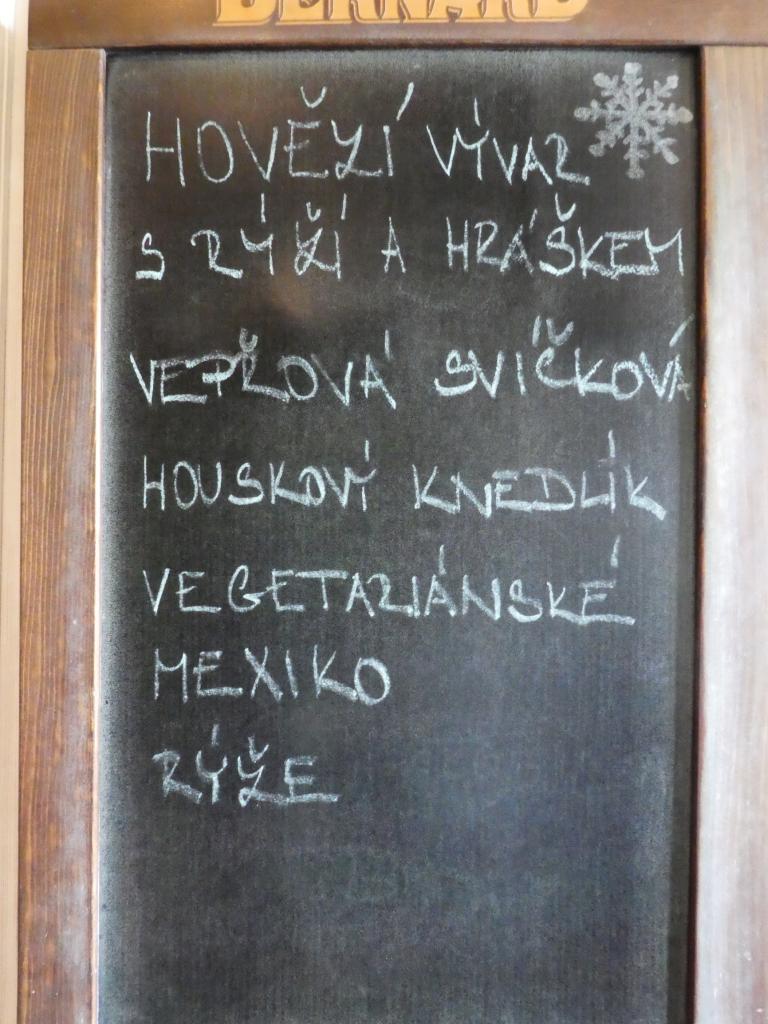 BERNARD
HOVĚZÍ VÝVAR
S RÝŽÍ A HRÁŠKEM
VEPŘOVÁ SVÍČKOVÁ
HOUSKOVÝ KNEDLÍK
VEGETARIÁNSKÉ
MEXIKO
RÝŽE